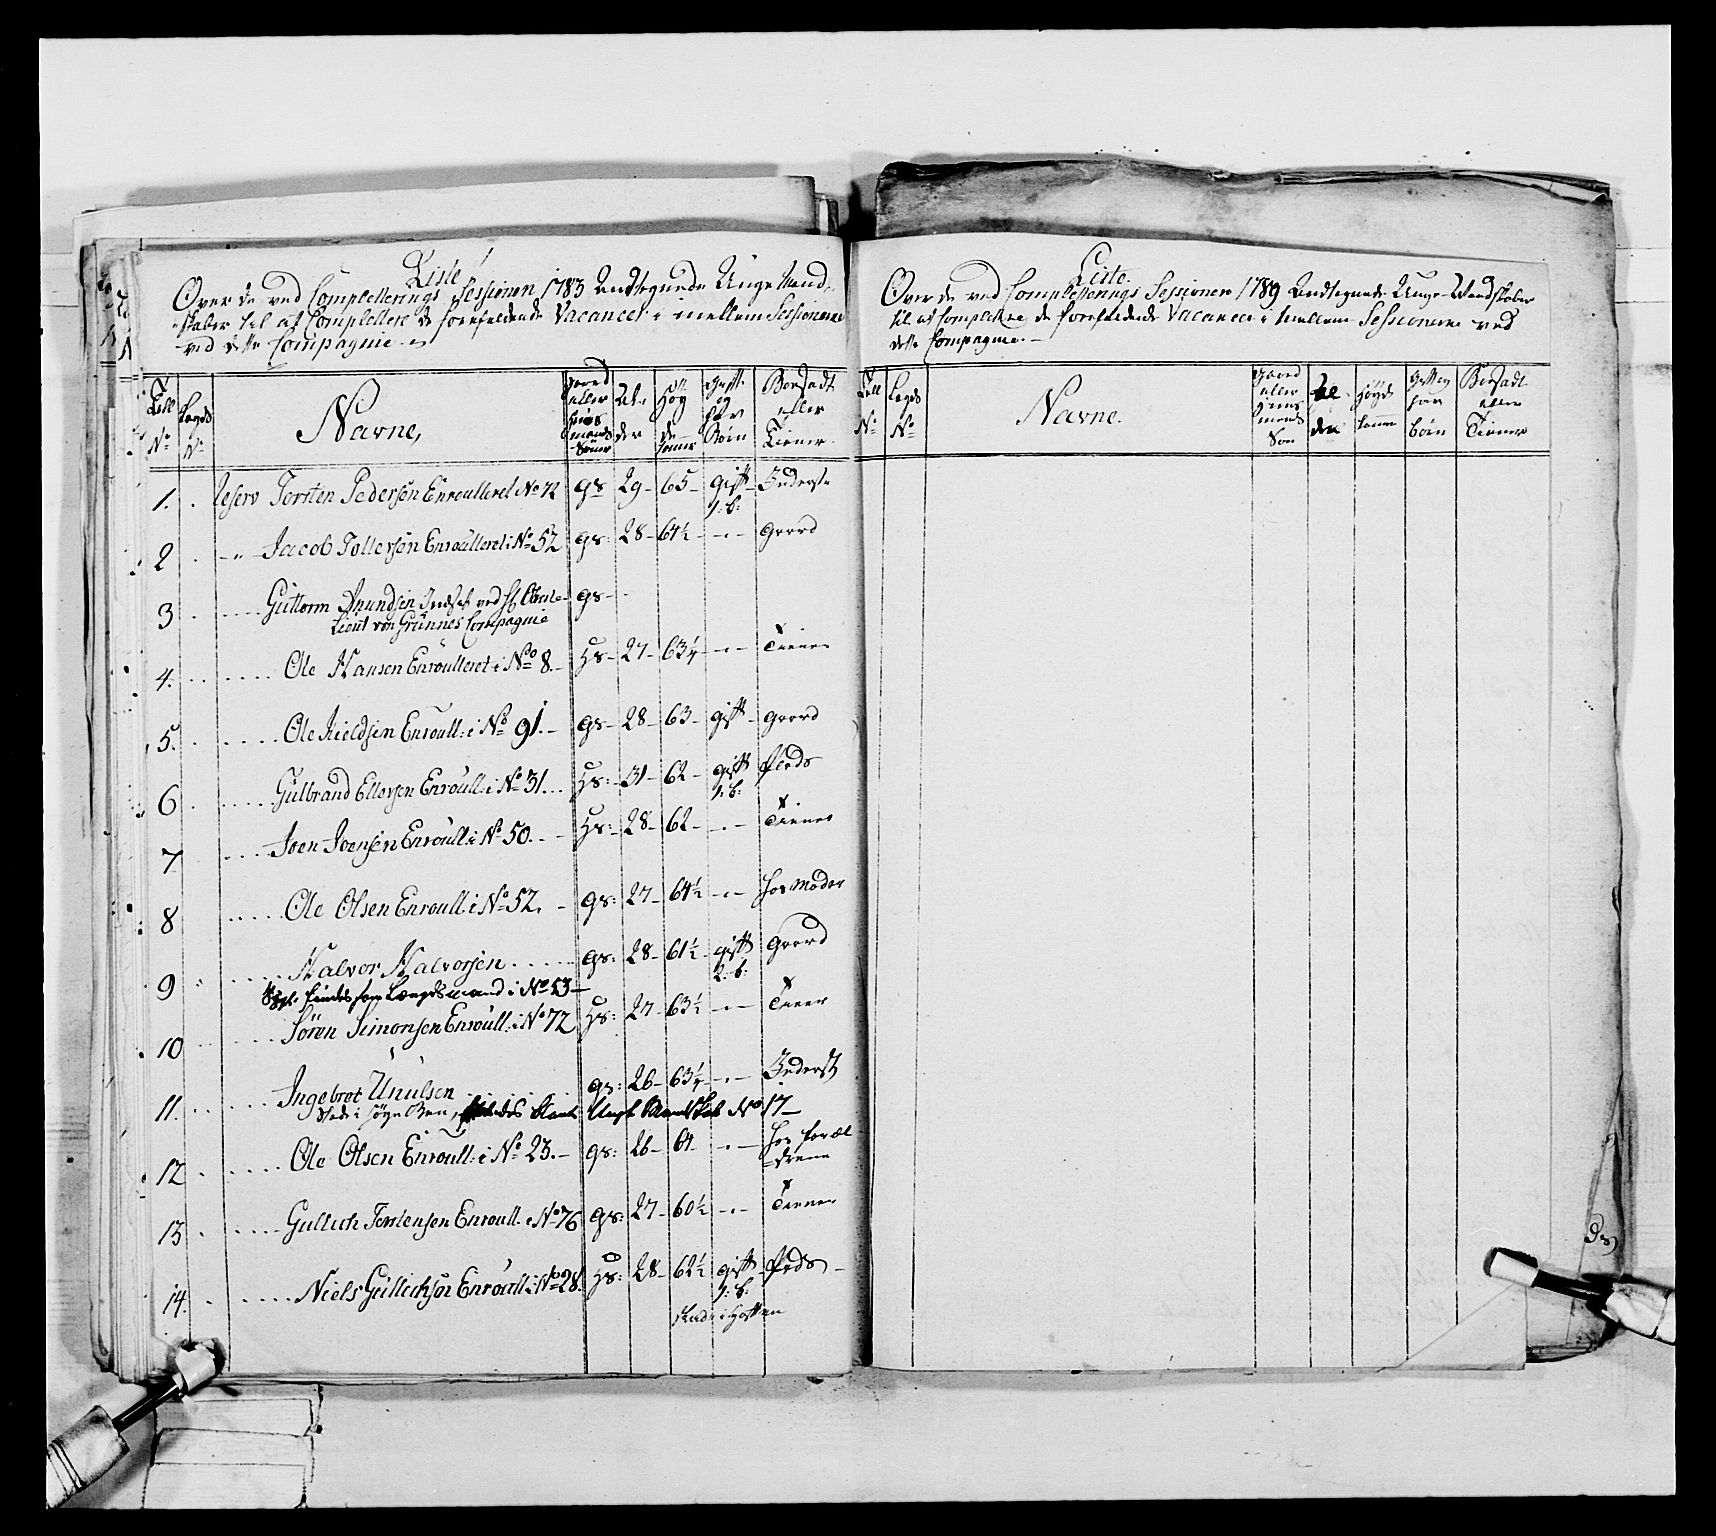 Liste
Over de ved Completterings Sessionen 1783 Andtegnede Unge Mand-
skaber til at Complettere de forefaldende Vacancer i mellem Sessionerne
ved dette Compagnie
Till No
Lægds No
Navne,
Gaard eller Huus mands Sønner
Al- der
Høy de tomer
Gift og har Børn
Bosadt eller Tiener
1. Reserv Torsten Pedersøn Enroulleret No 72 gs 29 65 gift 1: b: Inderst
2 Jacob Tollersøn Enroulleret i No 52 gs: 28 64½ Gaard
3 Guttorm Amundsen Indsat ved H Obrste-
Lieut von Grünnes Compagnie gs
4. Ole Hansen Enroulleret i No 8. Hs 27 63¼ Tiener
5. Ole Kieldsen Enroull: i No 91. gs 28 63 gift Gaard
6 Gulbrand Ellevsen Enroull: i No 31. Hs: 31 62 gift 1: b: Plads
7 Joen Joensen Enroull: i No 50. Hs: 28 62 Tiener
8 Ole Olsen Enroull: i No 52. gs: 27 64½ hos Moder
9 Halvor Halvorsen gs: 28 61½ gift 2: b: Gaard
findes som Lægdsmand i No 53
10 Søren Simonsen Enroull: i No 72 Hs: 27 63½ Tiener
11. Ingebret Unulsen gs: 26 63¼ Inderst
Ungt Mandskab No 17
12 Ole Olsen Enroull: i No 23. gs: 26 64 hos foræl-
drene
13 Gullich Torstensen Enroull: i No 76 gs: 27 60½ Tiener
14. Niels Gullichsøn Enroull: i No 28. Hs: 28 62½ gift 1: b: Plads
Skade i Hoften
Liste
Over de ved Completterings Sessionen 1789 Andtegnede Unge Mandskaber
til at Complettere de forefaldende Vacancer i mellem Sessionerne ved
dette Compagnie.
Till No
Lægds No
Navne.
Gaard eller Huus mands Søn
Al den
Høyde tomme
Gift og har Børn
Bosadt eller Tiener